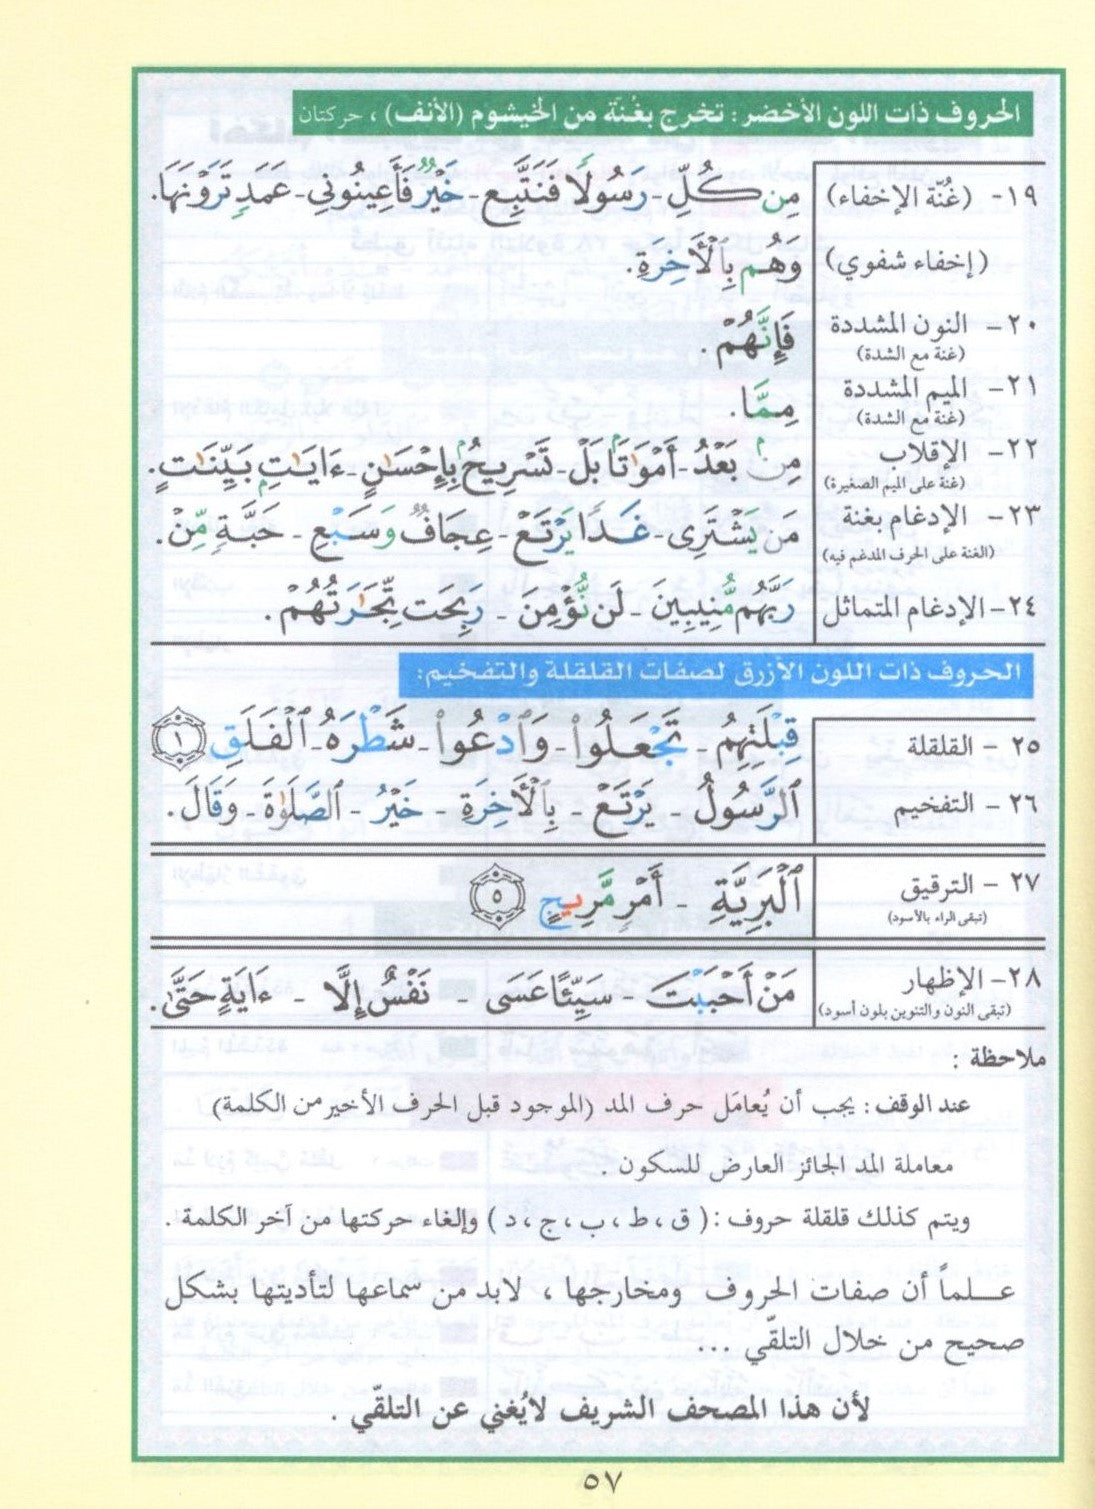 الحروف ذات اللون الأخضر: تخرج بغُنّة من الخيشوم (الأنف) ، حركتان
١٩- (غُنّة الإخفاء) مِن كُلِّ - رَسُولًا فَنَتَّبِع - خَيْرٌ فَأَعِينُونِي - عَمَدٍ تَرَوْنَهَا.
(إخفاء شفوي) وَهُم بِٱلْأَخِرَةِ.
٢٠- النون المشددة فَإِنَّهُمْ.
(غنة مع الشدة)
٢١- الميم المشددة مِمَّا.
(غنة مع الشدة)
٢٢- الإقلاب مِنۢ بَعْدُ - أَمْوَٰتَۢا بَلْ - تَسْرِيحُۢ بِإِحْسَٰنٍ - ءَايَٰتِۭ بَيِّنَٰتٍ.
(غنة على الميم الصغيرة)
٢٣- الإدغام بغنة مَن يَشْتَرِى - غَدًا يَرْتَعْ - عِجَافٌ وَسَبْعِ - حَبَّةٍ مِّنْ.
(الغنة على الحرف المدغم فيه)
٢٤- الإدغام المتماثل رَبَّهُم مُّنِيبِينَ - لَن نُّؤْمِنَ - رَبِحَت تِّجَٰرَتُهُمْ.
الحروف ذات اللون الأزرق لصفات القلقلة والتفخيم:
٢٥- القلقلة قِبْلَتِهِمُ - تَجْعَلُوا - وَادْعُوا - شَطْرَهُ - ٱلْفَلَقِ ١
٢٦- التفخيم ٱلرَّسُولُ - يَرْتَعْ - بِٱلْأَخِرَةِ - خَيْرُ - ٱلصَّلَوٰةَ - وَقَالَ.
٢٧- الترقيق ٱلْبَرِيَّةِ - أَمْرٍ مَّرِيجٍ ٥
(تبقى الراء بالأسود)
٢٨- الإظهار مَنْ أَحْبَبْتَ - سَيِّئًا عَسَى - نَفْسٌ إِلَّا - ءَايَةٍ حَتَّىٰ.
(تبقى النون والتنوين بلون أسود)
ملاحظة :
عند الوقف: يجب أن يُعامَل حرف المد (الموجود قبل الحرف الأخير من الكلمة)
معاملة المد الجائز العارض للسكون .
ويتم كذلك قلقلة حروف: ( ق ، ط ، ب ، ج ، د ) وإلغاء حركتها من آخر الكلمة .
علماً أن صفات الحروف ومخارجها ، لابد من سماعها لتأديتها بشكل
صحيح من خلال التلقّي ...
لأن هذا المصحف الشريف لايُغني عن التلقّي .
٥٧